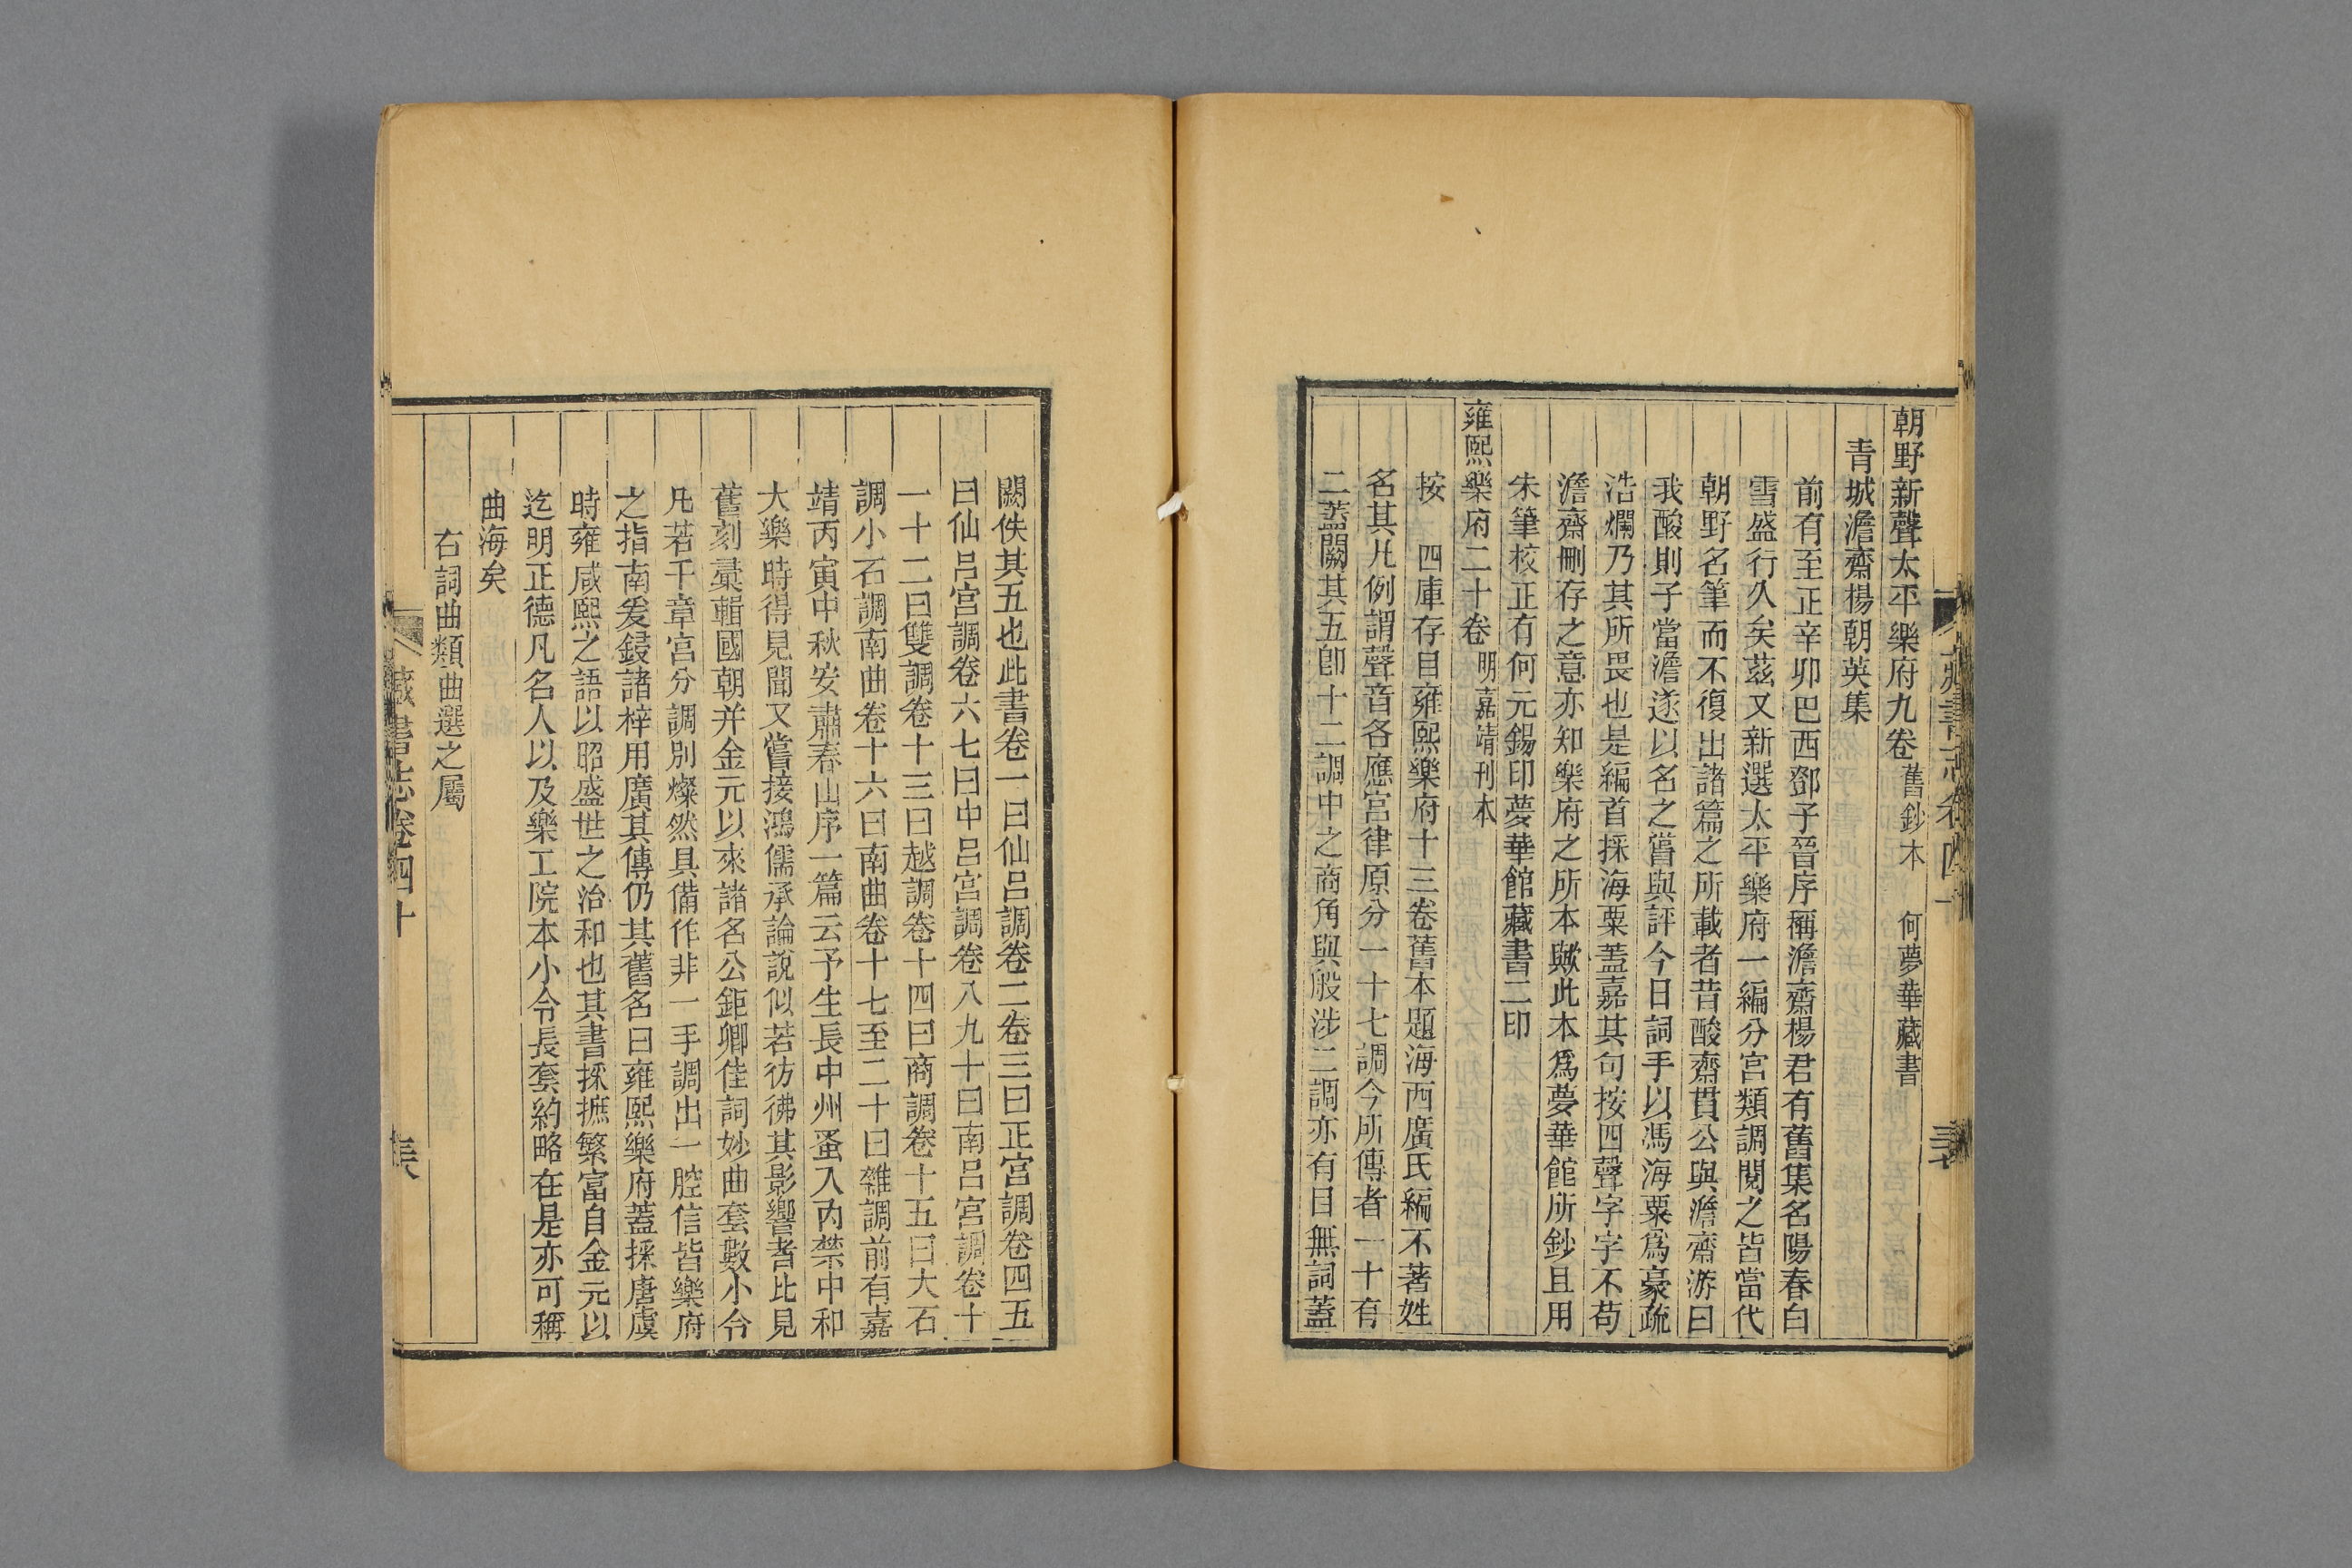 朝野新聲太平樂府九卷 舊鈔本 何夢華藏書
青城澹齋楊朝英集
前有至正辛卯巴西鄧子晉序稱澹齋楊君有舊集名陽春白
雪盛行久矣茲又新選太平樂府一編分宮類調閱之皆當代
朝野名筆而不復出諸篇之所載者昔酸齋貫公與澹齋游曰
我酸則子當澹遂以名之嘗與評今日詞手以馮海粟爲豪疏
浩爛乃其所畏也是編首採海粟蓋嘉其句按四聲字字不苟
澹齋刪存之意亦知樂府之所本歟此本爲夢華館所鈔且用
朱筆校正有何元錫印夢華館藏書二印
雍熙樂府二十卷 明嘉靖刊本
按 四庫存目雍熙樂府十三卷舊本題海西廣氏編不著姓
名其凡例謂聲音各應宮律原分一十七調今所傳者一十有
二蓋闕其五卽十二調中之商角與般涉二調亦有目無詞蓋
闕佚其五也此書卷一曰仙呂調卷二卷三曰正宮調卷四五
曰仙呂宮調卷六七曰中呂宮調卷八九十曰南呂宮調卷十
一十二曰雙調卷十三曰越調卷十四曰商調卷十五曰大石
調小石調南曲卷十六曰南曲卷十七至二十曰雜調前有嘉
靖丙寅中秋安肅春山序一篇云予生長中州蚤入內禁中和
大樂時得見聞又嘗接鴻儒承論說似若彷彿其影響者比見
舊刻彙輯國朝并金元以來諸名公鉅卿佳詞妙曲套數小令
凡若千章宮分調別燦然具備作非一手調出一腔信皆樂府
之指南爰鋟諸梓用廣其傳仍其舊名曰雍熙樂府蓋採唐虞
時雍咸熙之語以昭盛世之治和也其書採摭繁富自金元以
迄明正德凡名人以及樂工院本小令長套約略在是亦可稱
曲海矣
右詞曲類曲選之屬
藏書志卷四十